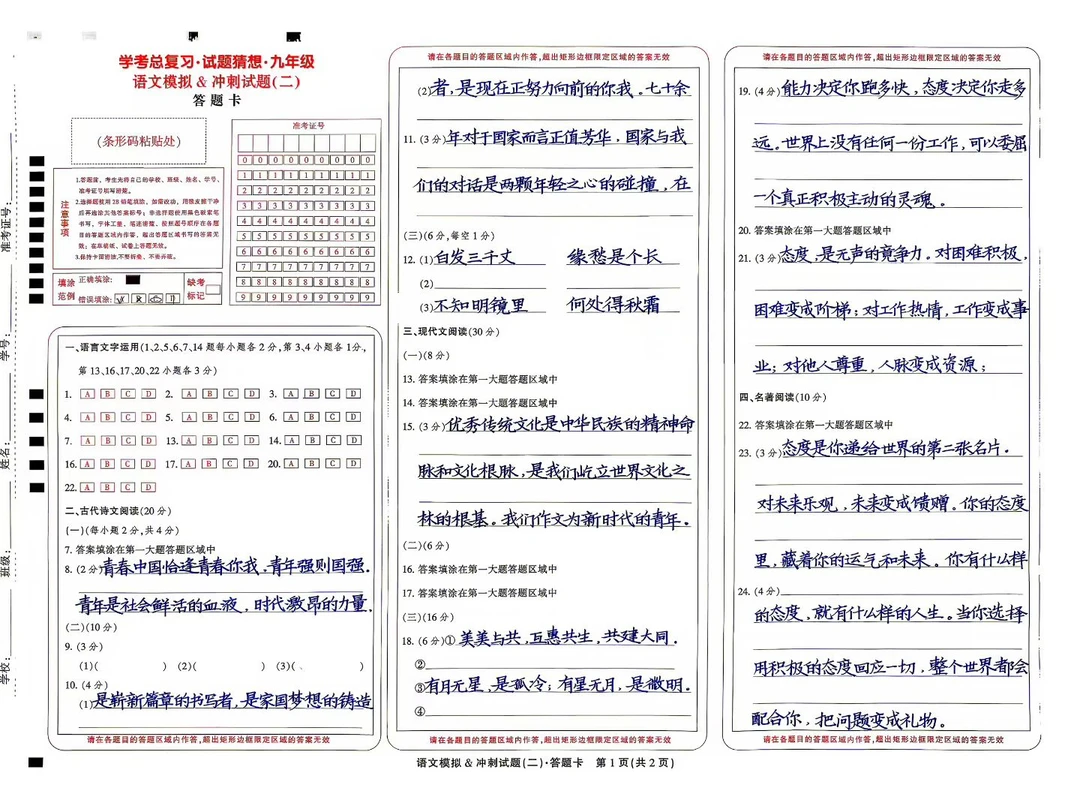 学考总复习·试题猜想·九年级
语文模拟&冲刺试题(二)
答题卡
(条形码粘贴处)
准考证号
0 0 0 0 0 0 0 0 0
1 1 1 1 1 1 1 1 1
2 2 2 2 2 2 2 2 2
3 3 3 3 3 3 3 3 3
4 4 4 4 4 4 4 4 4
5 5 5 5 5 5 5 5 5
6 6 6 6 6 6 6 6 6
7 7 7 7 7 7 7 7 7
8 8 8 8 8 8 8 8 8
9 9 9 9 9 9 9 9 9
注意事项
1.答题前,考生先将自己的学校、班级、姓名、学号、
准考证号填写清楚。
3.保持卡面清洁,不要折叠、不要弄破。
填涂范例
正确填涂:
错误填涂:
缺考标记
准考证号:
学号:
姓名:
班级:
学校:
一、语言文字运用(1、2、5、6、7、14题每小题各2分,第3、4小题各1分,
第13、16、17、20、22小题各3分)
1. A B C D 2. A B C D 3. A B C D
4. A B C D 5. A B C D 6. A B C D
7. A B C D 13. A B C D 14. A B C D
16. A B C D 17. A B C D 20. A B C D
22. A B C D
二、古代诗文阅读(20分)
(一)(每小题2分,共4分)
7. 答案填涂在第一大题答题区域中
8. (2分)青春中国恰逢青春你我,青年强则国强。
青年是社会鲜活的血液,时代激昂的力量。
(二)(10分)
9. (3分)
(1)( ) (2)( ) (3)( )
10. (4分)
(1)是崭新篇章的书写者,是家国梦想的铸造
请在各题目的答题区域内作答,超出矩形边框限定区域的答案无效
请在各题目的答题区域内作答,超出矩形边框限定区域的答案无效
(2)者,是现在正努力向前的你我。七十余
11. (3分)年对于国家而言正值芳华,国家与我
们的对话是两颗年轻之心的碰撞,在
(三)(6分,每空1分)
12. (1)白发三千丈 缘愁是个长
(2)
(3)不知明镜里 何处得秋霜
三、现代文阅读(30分)
(一)(8分)
13. 答案填涂在第一大题答题区域中
14. 答案填涂在第一大题答题区域中
15. (3分)优秀传统文化是中华民族的精神命
脉和文化根脉,是我们屹立世界文化之
林的根基。我们作文为新时代的青年。
(二)(6分)
16. 答案填涂在第一大题答题区域中
17. 答案填涂在第一大题答题区域中
(三)(16分)
18. (6分)①美美与共,互惠共生,共建大同。
②
③有月无星,是孤冷;有星无月,是微明。
④
请在各题目的答题区域内作答,超出矩形边框限定区域的答案无效
请在各题目的答题区域内作答,超出矩形边框限定区域的答案无效
19. (4分)能力决定你跑多快,态度决定你走多
远。世界上没有任何一份工作,可以委屈
一个真正积极主动的灵魂。
20. 答案填涂在第一大题答题区域中
21. (3分)态度,是无声的竟争力。对困难积极,
困难变成阶梯;对工作热情,工作变成事
业;对他人尊重,人脉变成资源;
四、名著阅读(10分)
22. 答案填涂在第一大题答题区域中
23. (3分)态度是你递给世界的第二张名片。
对未来乐观,未来变成馈赠。你的态度
里,藏着你的运气和未来。你有什么样
24. (4分)
的态度,就有什么样的人生。当你选择
用积极的态度回应一切,整个世界都会
配合你,把问题变成礼物。
请在各题目的答题区域内作答,超出矩形边框限定区域的答案无效
语文模拟&冲刺试题(二)·答题卡 第1页(共2页)